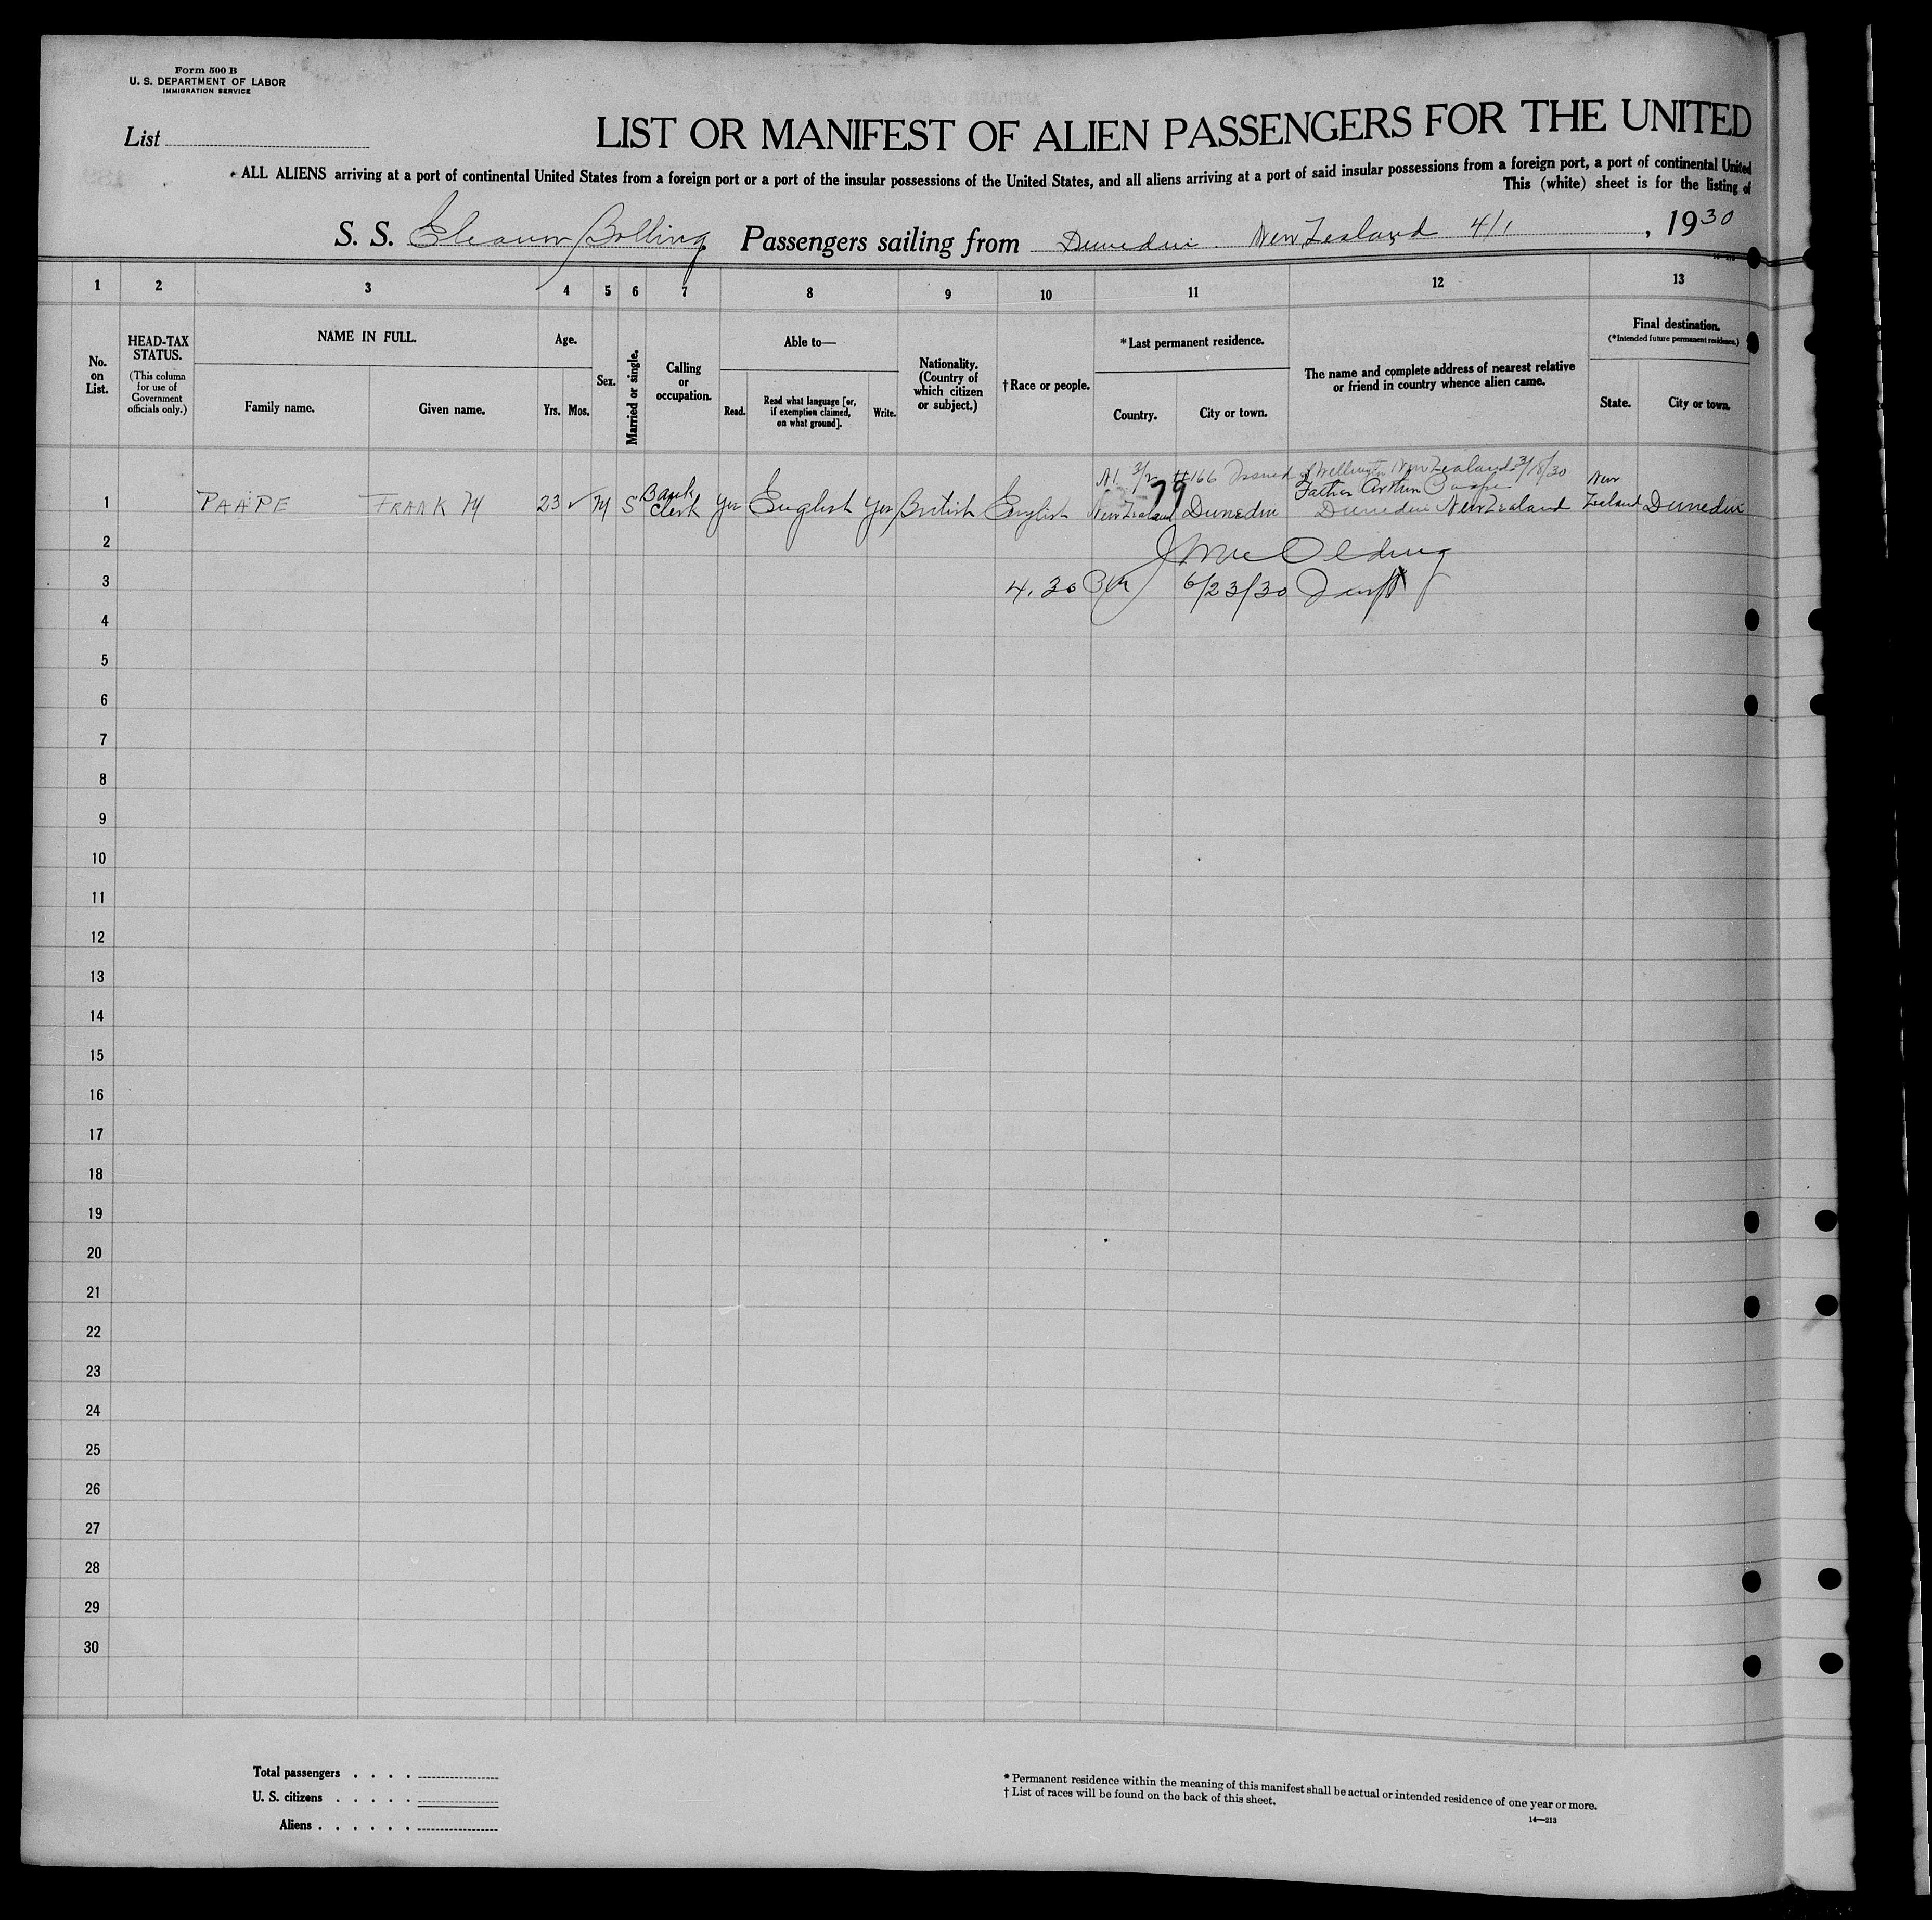 Form 500 B
U. S. DEPARTMENT OF LABOR
IMMIGRATION SERVICE
List
LIST OR MANIFEST OF ALIEN PASSENGERS FOR THE UNITED
ALL ALIENS arriving at a port of continental United States from a foreign port or a port of the insular possessions of the United States, and all aliens arriving at a port of said insular possessions from a foreign port, a port of continental United
This (white) sheet is for the listing of
S. S. Eleanor Bolling Passengers sailing from Dunedin New Zealand 4/1, 1930
1 2 3 4 5 6 7 8 9 10 11 12 13
No. on List.
HEAD-TAX STATUS.
(This column for use of Government officials only.)
NAME IN FULL.
Family name. Given name.
Age.
Yrs. Mos.
Sex.
Married or single.
Calling or occupation.
Able to—
Read. Read what language [or, if exemption claimed, on what ground]. Write.
Nationality. (Country of which citizen or subject.)
† Race or people.
*Last permanent residence.
Country. City or town.
The name and complete address of nearest relative or friend in country whence alien came.
Final destination.
(*Intended future permanent residence.)
State. City or town.
3/2 #166 Issued Wellington New Zealand 3/18/30
1 PAAPE FRANK M 23 ✓ M S Bank Clerk Yes English Yes British English New Zealand Dunedin Father Arthur Paape Dunedin New Zealand New Zealand Dunedin
79
2
3 4.30 6/23/30
4
5
6
7
8
9
10
11
12
13
14
15
16
17
18
19
20
21
22
23
24
25
26
27
28
29
30
Total passengers . . . .
U. S. citizens . . . . .
Aliens . . . . . .
* Permanent residence within the meaning of this manifest shall be actual or intended residence of one year or more.
† List of races will be found on the back of this sheet.
14—213